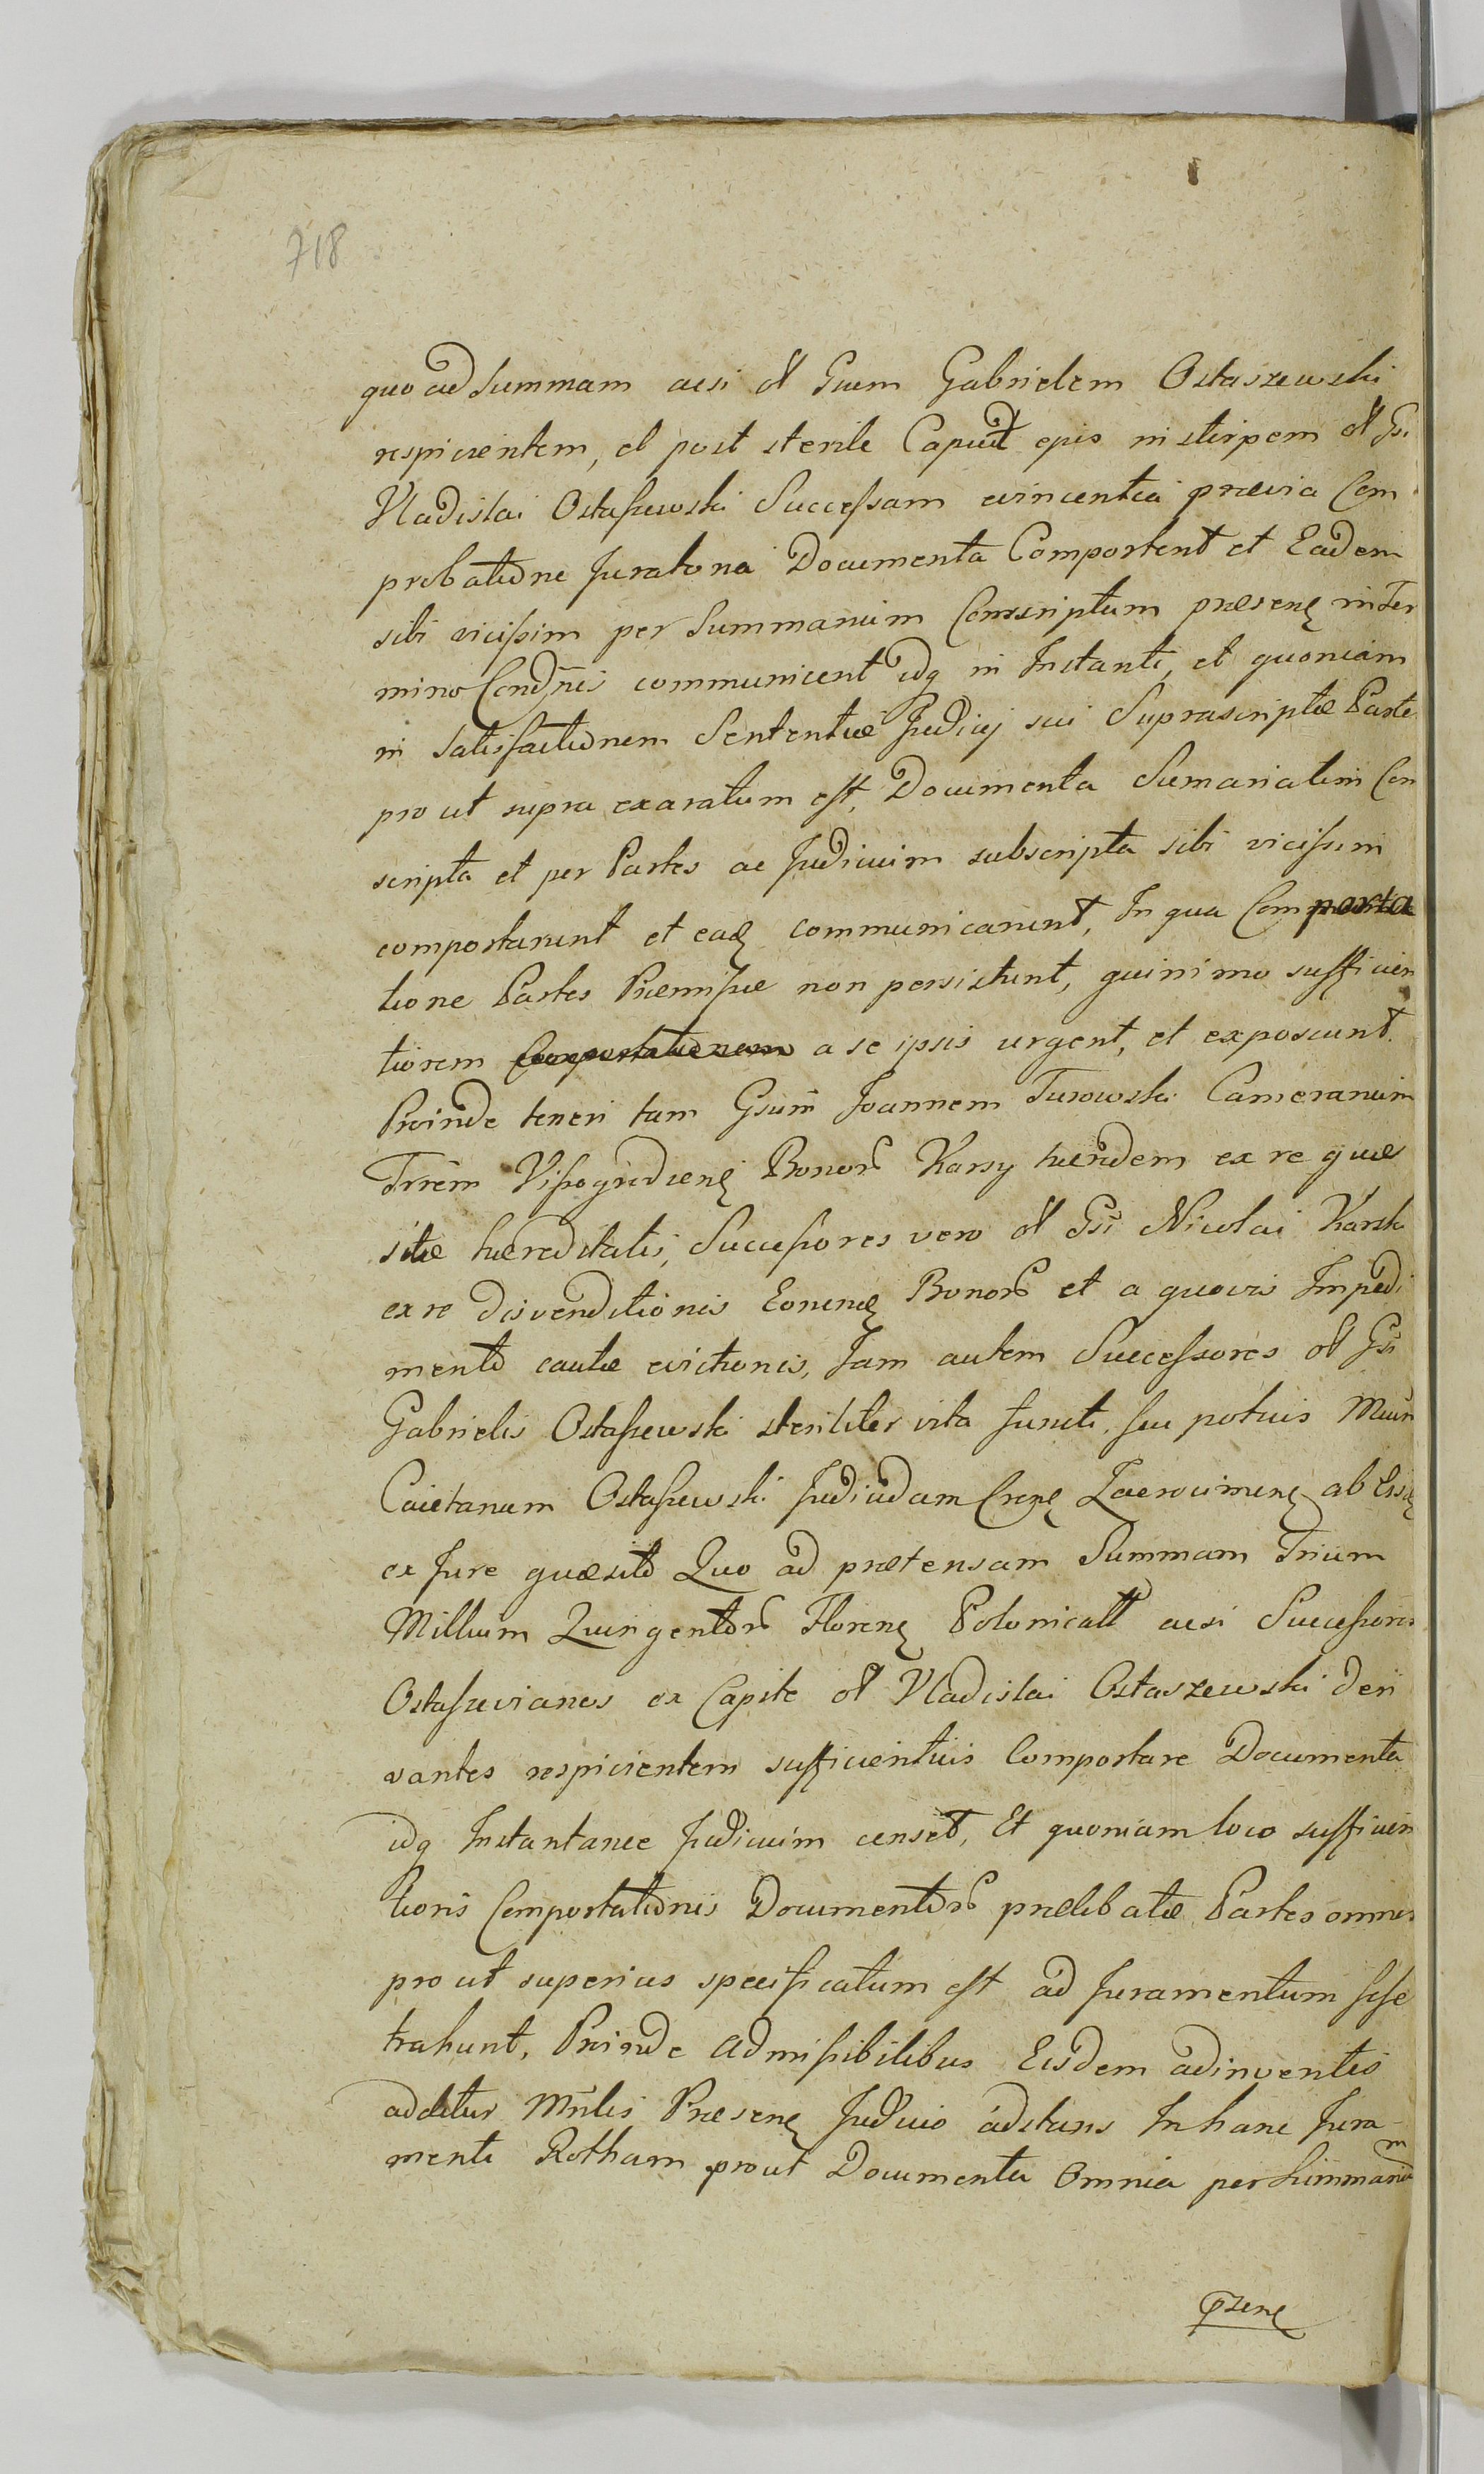 718
quo ad Summam acsi ol Gsum Gabrielem Ostaszewski
respicientem, et post sterile Caput ejus in stirpem ol Gsi
Vladislai Ostaszewski Successam evincentia praevia Com
probatione Juratoria Documenta Comportent et Eadem
sibi vicissim per Summarium Conscriptum praesenę in Ter
mino Condnis communicent idq in Instanti, et quoniam
in Satisfactionem Sententiae Judicij sui Suprascriptae Partes
prout supra exaratum est, Documenta Sumariatim Con
scripta et per Partes ac Judicium subscripta sibi vicissim
comportarunt et eadę communicarunt, In qua Comporta
tione Partes Praemissae non persistunt, quinimo sufficien
tiorem Comportationem a se ipsis urgent, et exposcunt.
Proinde teneri tam Gsum Joannem Turowski Camerarium
Trrem Vissogrodienę Bonor Karsy haeredem ex re quae
sitae haereditatis, Successores vero ol Gsi Nicolai Karski
ex re disvenditionis Eorundę Bonor et a quovis Impedi
mento cautae evictionis, Jam autem Successores ol Gsi
Gabrielis Ostaszewski steriliter vita functi, seu potius Mcum
Caietanum Ostaszewski Judicem Crenę Zacrocimenę ab Eisdę
ex Jure quaesito Quo ad praetensam Summam Trium
Millium Quingentor Florenę Polonicall acsi Successores
Ostaszevianos ex Capite ol Vladislai Ostaszewski deri
vantes respicientem sufficientius Comportare Documenta
idq Instantanee Judicium censet, Et quoniam loco sufficien
tioris Comportationis Documentor praelibatae Partes omnes
prout superius specificatum est ad Juramentum sese
trahunt, Proinde admissibilibus Eisdem adinventis
additur Mnlis Praesenę Judicio adstans In hanc Jura-
menti Rotham prout Documenta Omnia per Summarium
przenę